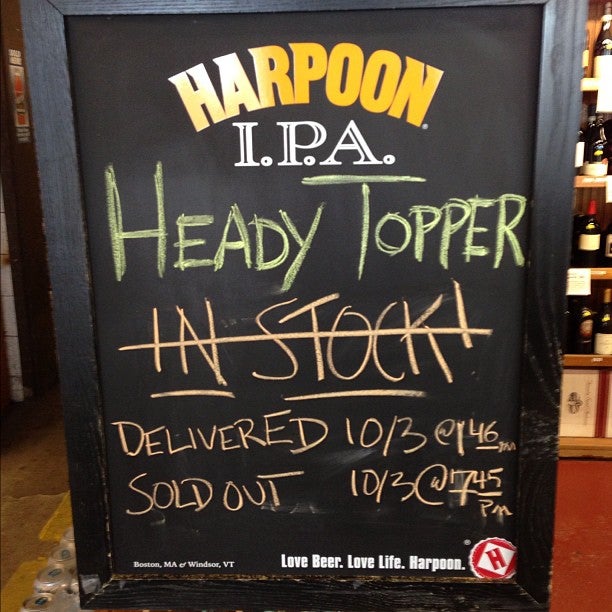 HARPOON
I.P.A.
HEADY TOPPER
IN STOCK!
DELIVERED 10/3 @ 1:46 PM
SOLD OUT 10/3 @ 1745 PM
Boston, MA & Windsor, VT
Love Beer. Love Life. Harpoon.
H